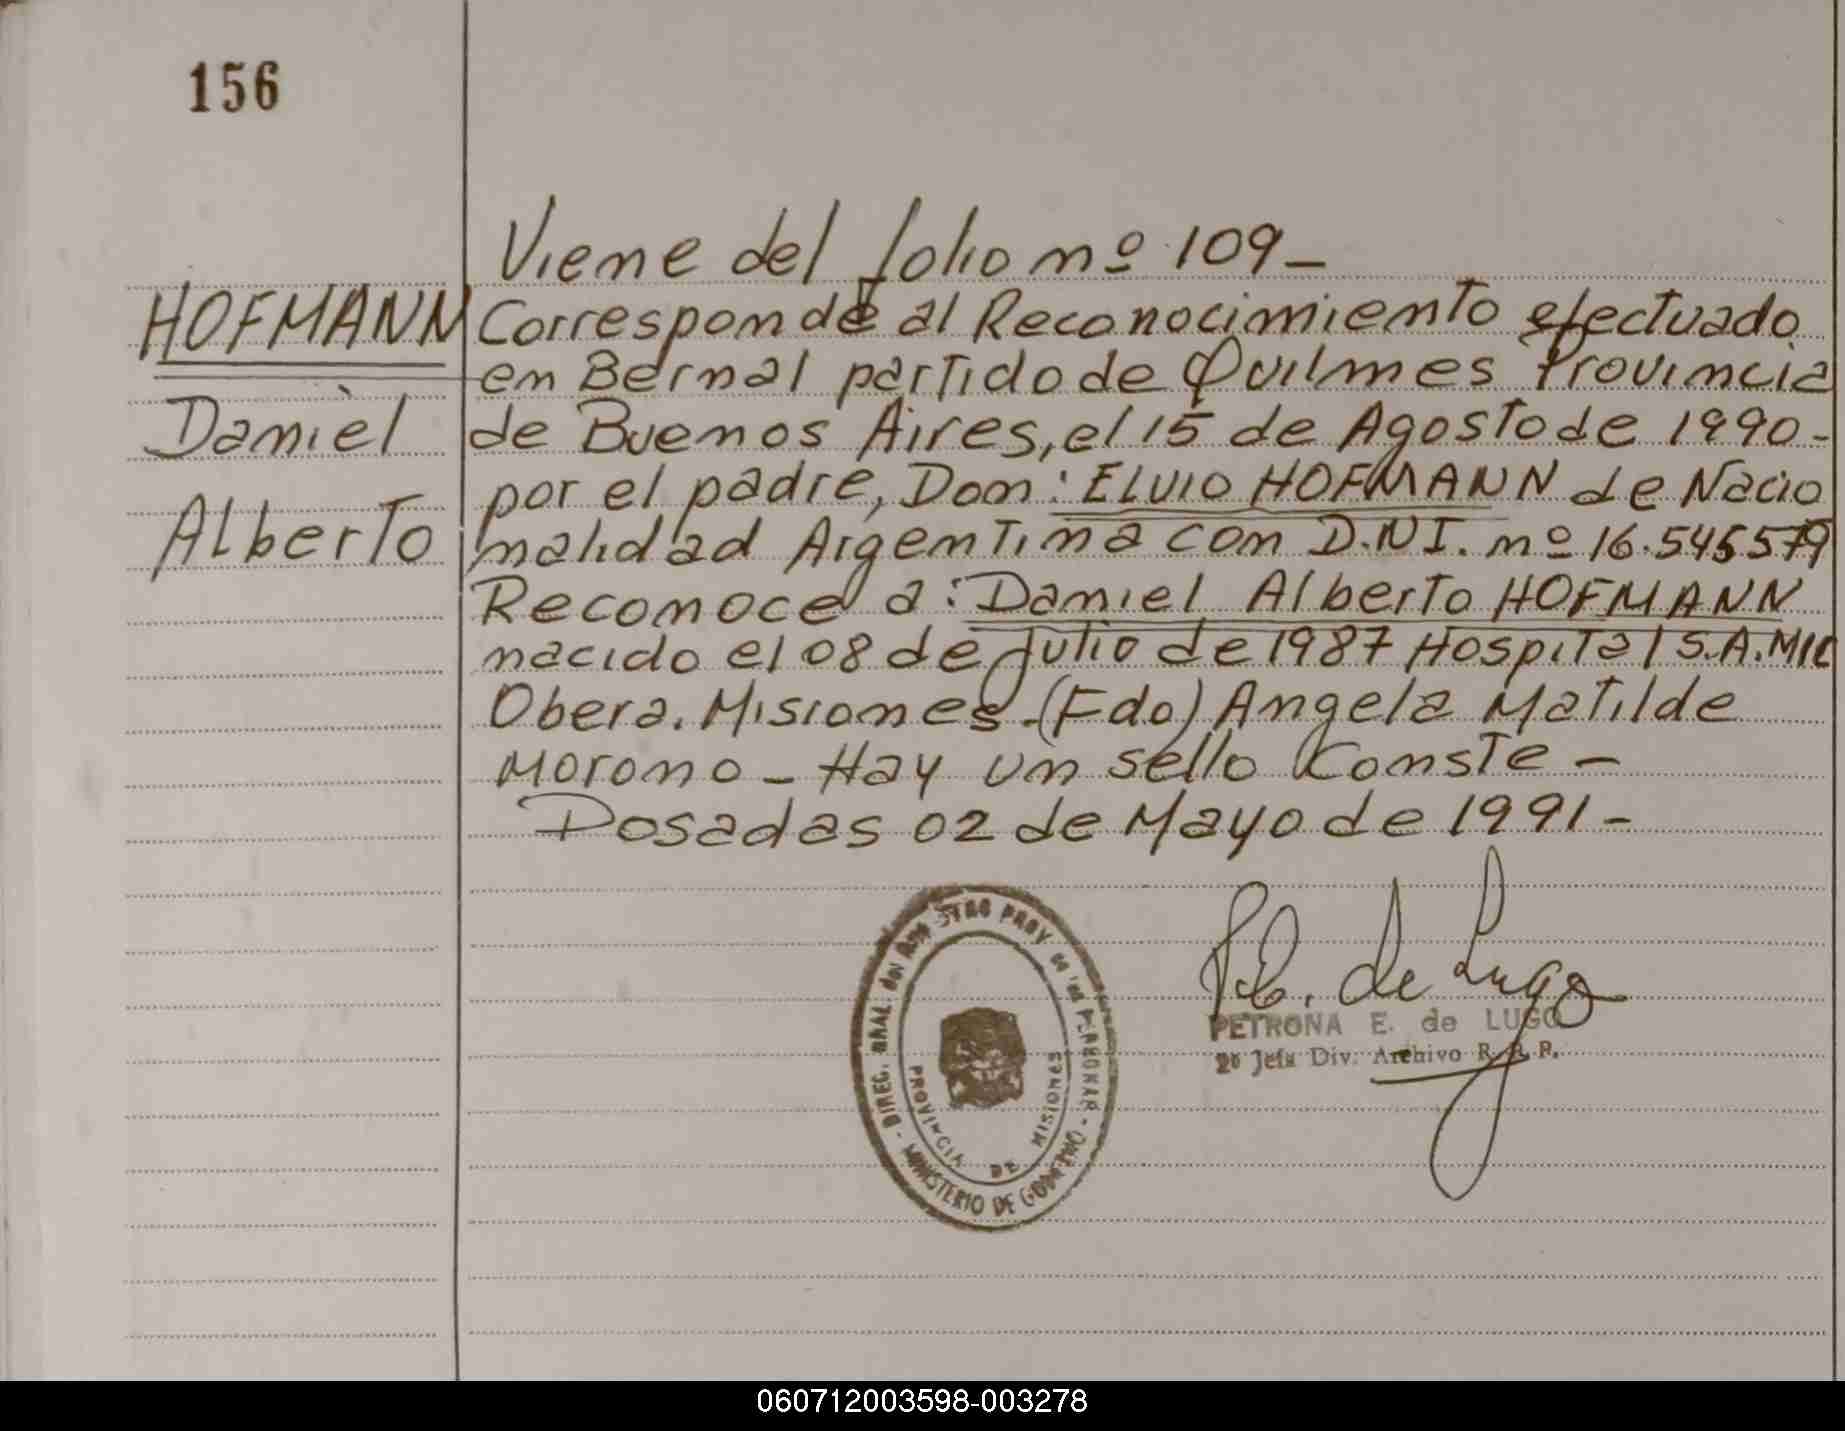 156
Viene del folio nº 109-
HOFMANN
Daniel
Alberto
Corresponde al Reconocimiento efectuado
en Bernal partido de Quilmes Provincia
de Buenos Aires, el 15 de Agosto de 1990-
por el padre, Don: ELVIO HOFMANN de Nacio
nalidad Argentina con D.N.I. nº 16.545579
Reconoce a: Daniel Alberto HOFMANN
nacido el 08 de Julio de 1987 Hospital S.A.MIC
Obera. Misiones-(Fdo) Angela Matilde
Morono- Hay un sello Conste-
Posadas 02 de Mayo de 1991-
P.E. de Lugo
PETRONA E. de LUGO
2º Jefa Div. Archivo R. P.
DIREC. GRAL. del REGISTRO PROV de las PERSONAS
- MINISTERIO DE GOBIERNO -
PROVINCIA DE MISIONES
060712003598-003278